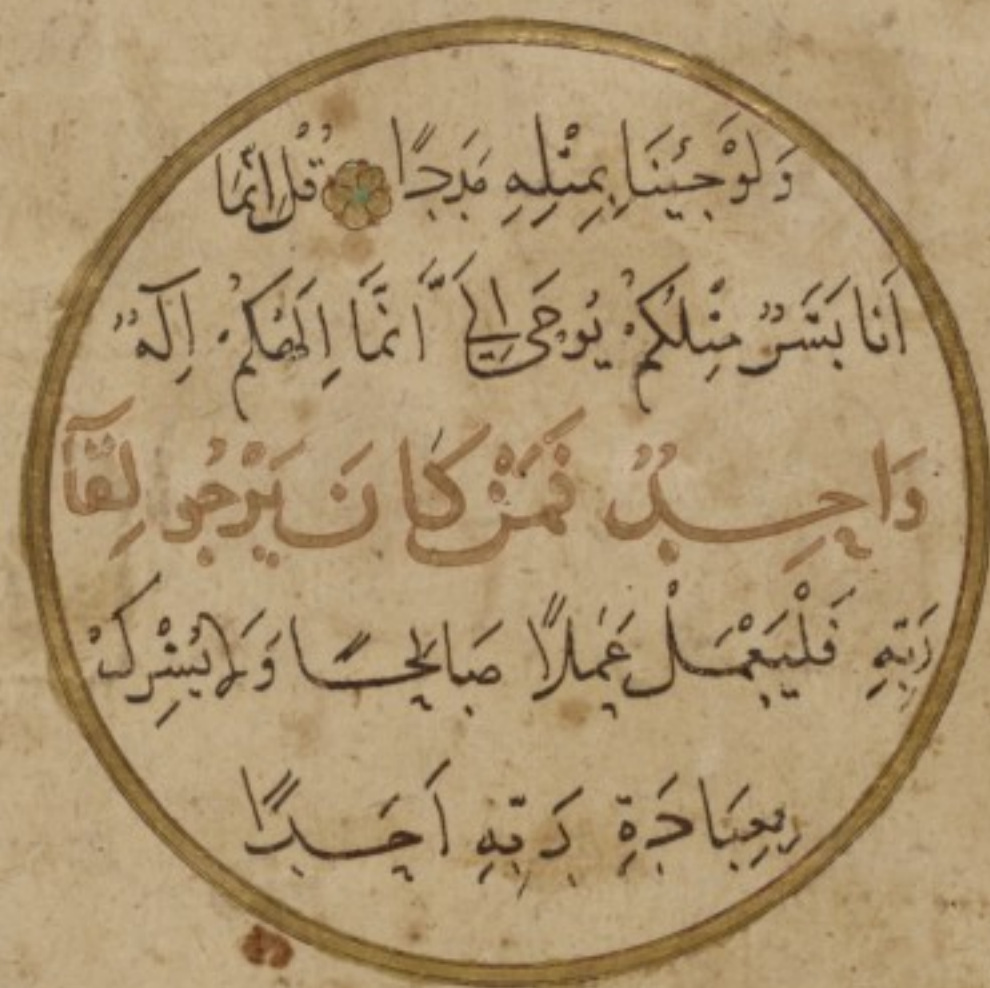 وَلَوْ جِئْنَا بِمِثْلِهِ مَدَدًا قُلْ اِنَّمَا
اَنَا بَشَرٌ مِثْلُكُمْ يُوحَى اِلَيَّ اَنَّمَا اِلَهُكُمْ اِلَهٌ
وَاحِدٌ فَمَنْ كَانَ يَرْجُو لِقَآ
رَبِّهِ فَلْيَعْمَلْ عَمَلًا صَالِحًا وَلَا يُشْرِكْ
بِعِبَادَةِ رَبِّهِ اَحَدًا